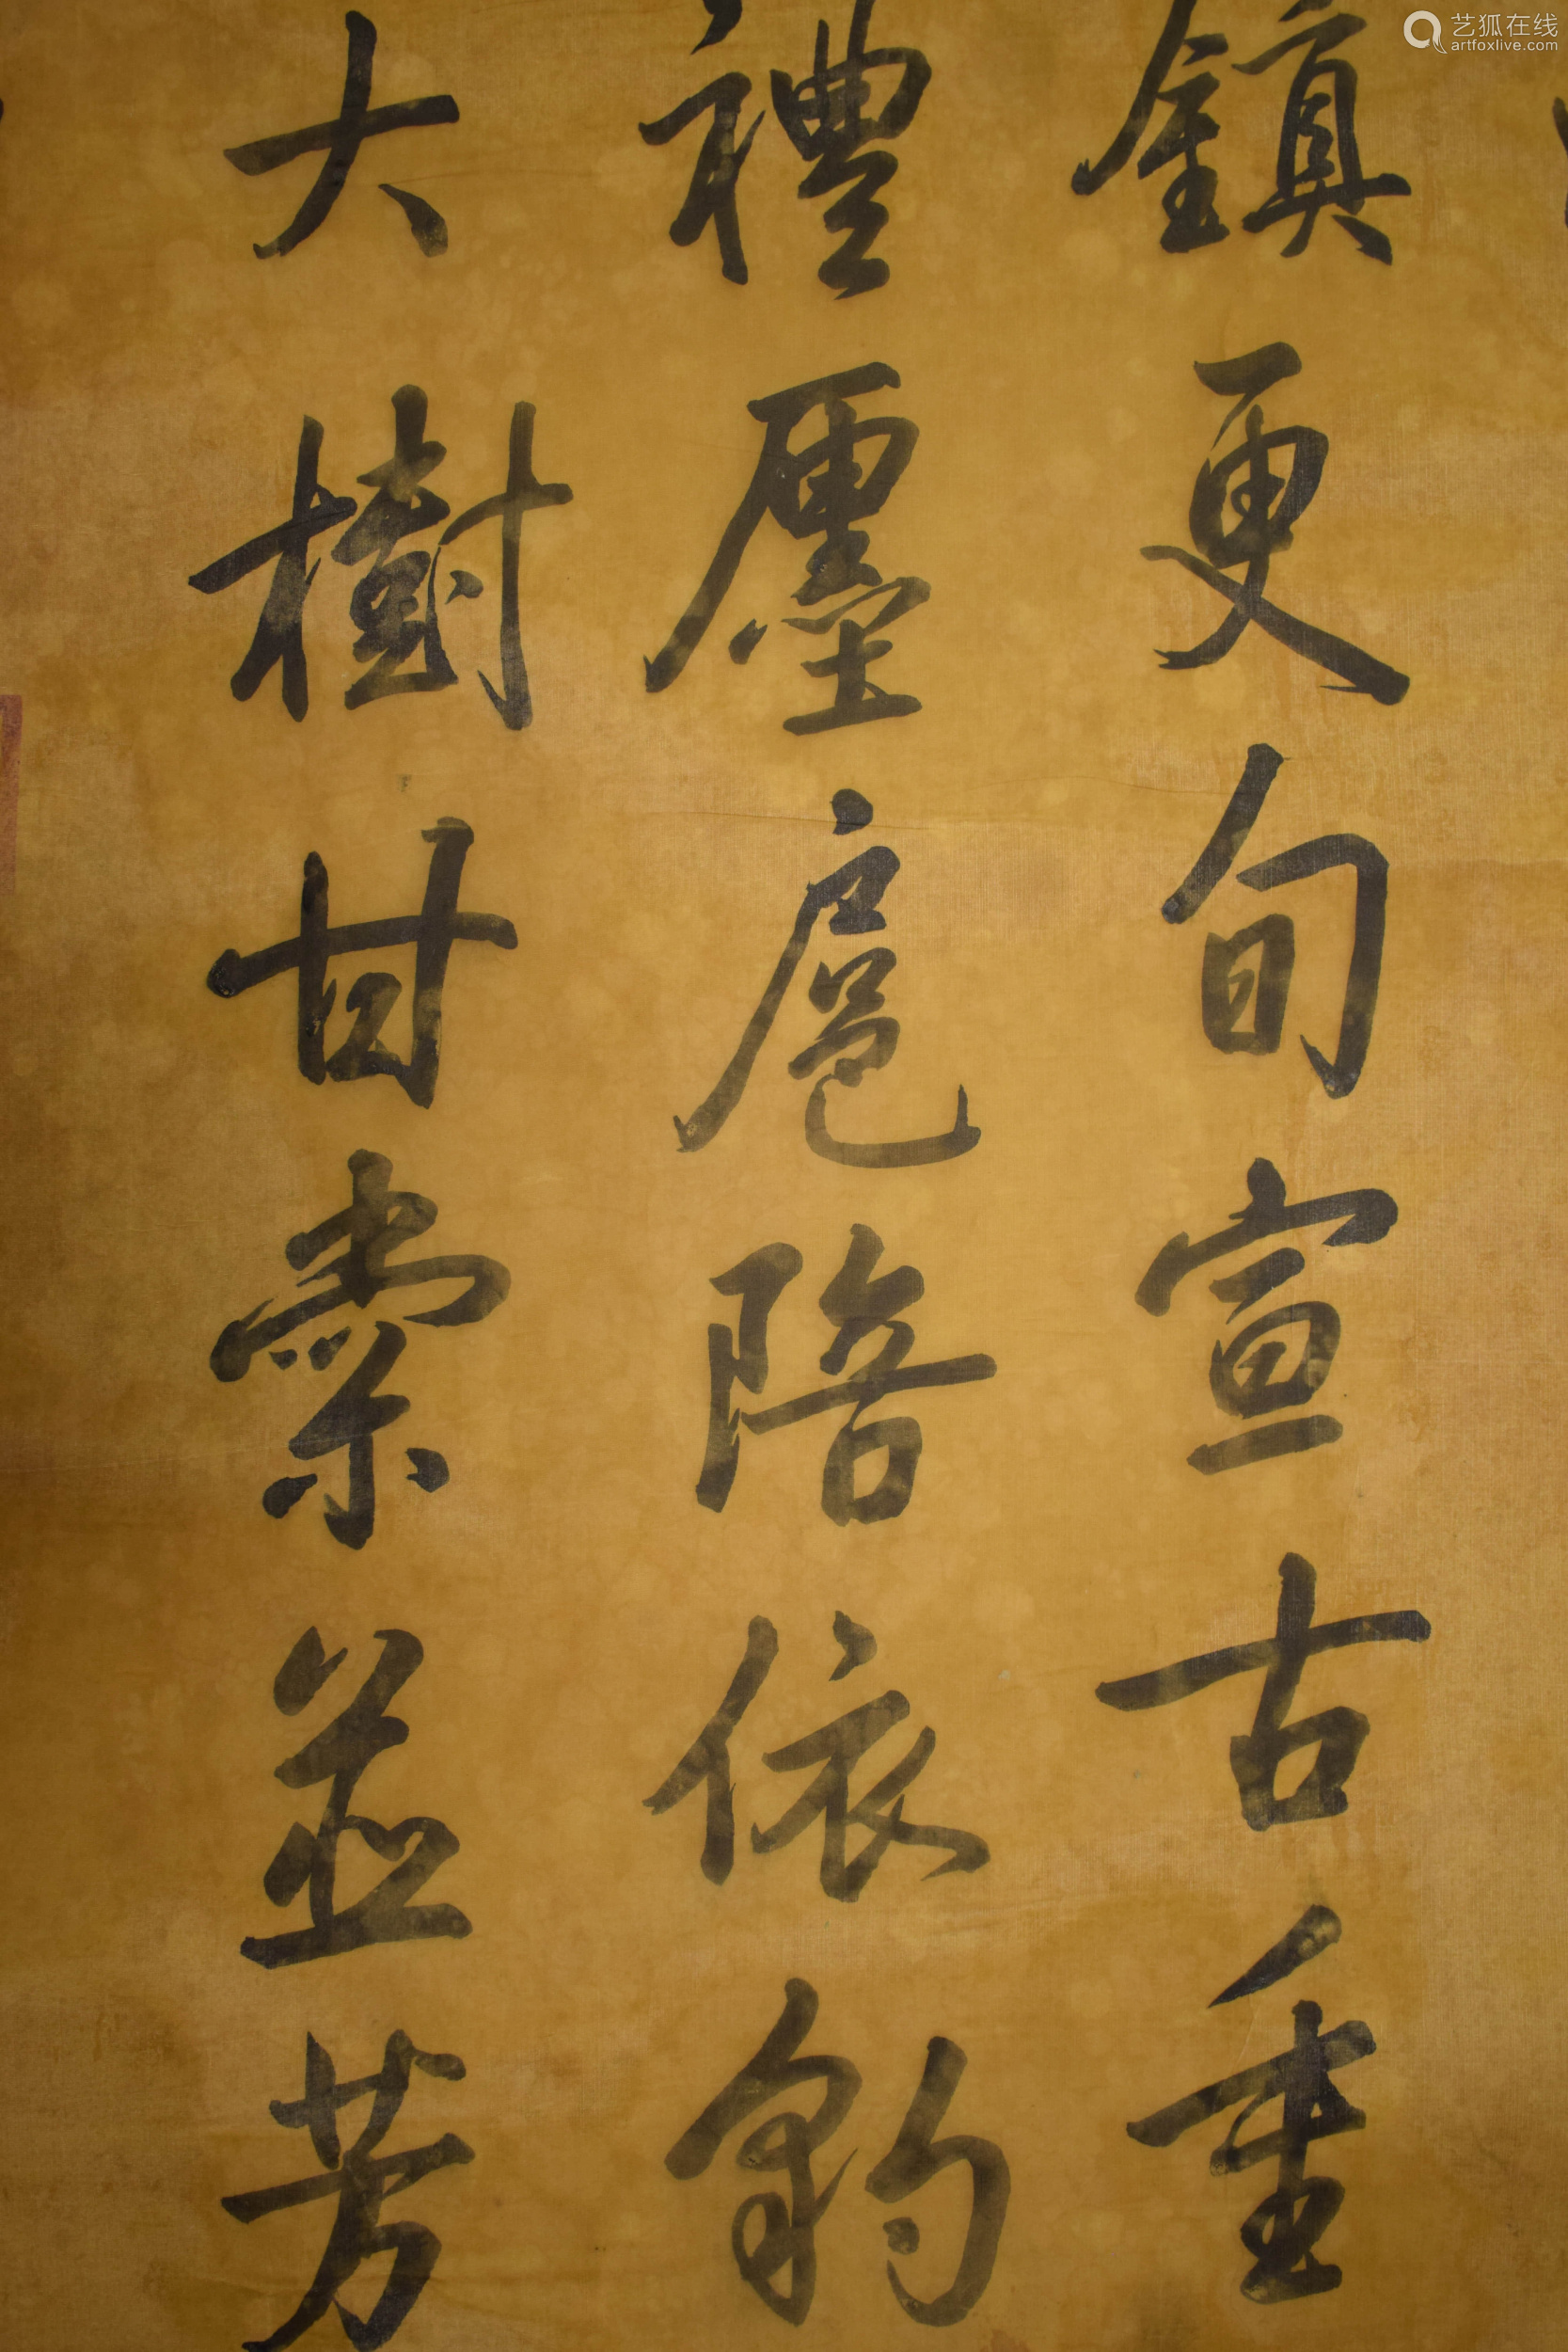 鎮更旬宣古重
禮廛扈陪依豹
大樹甘棠並芳
艺狐在线
artfoxlive.com